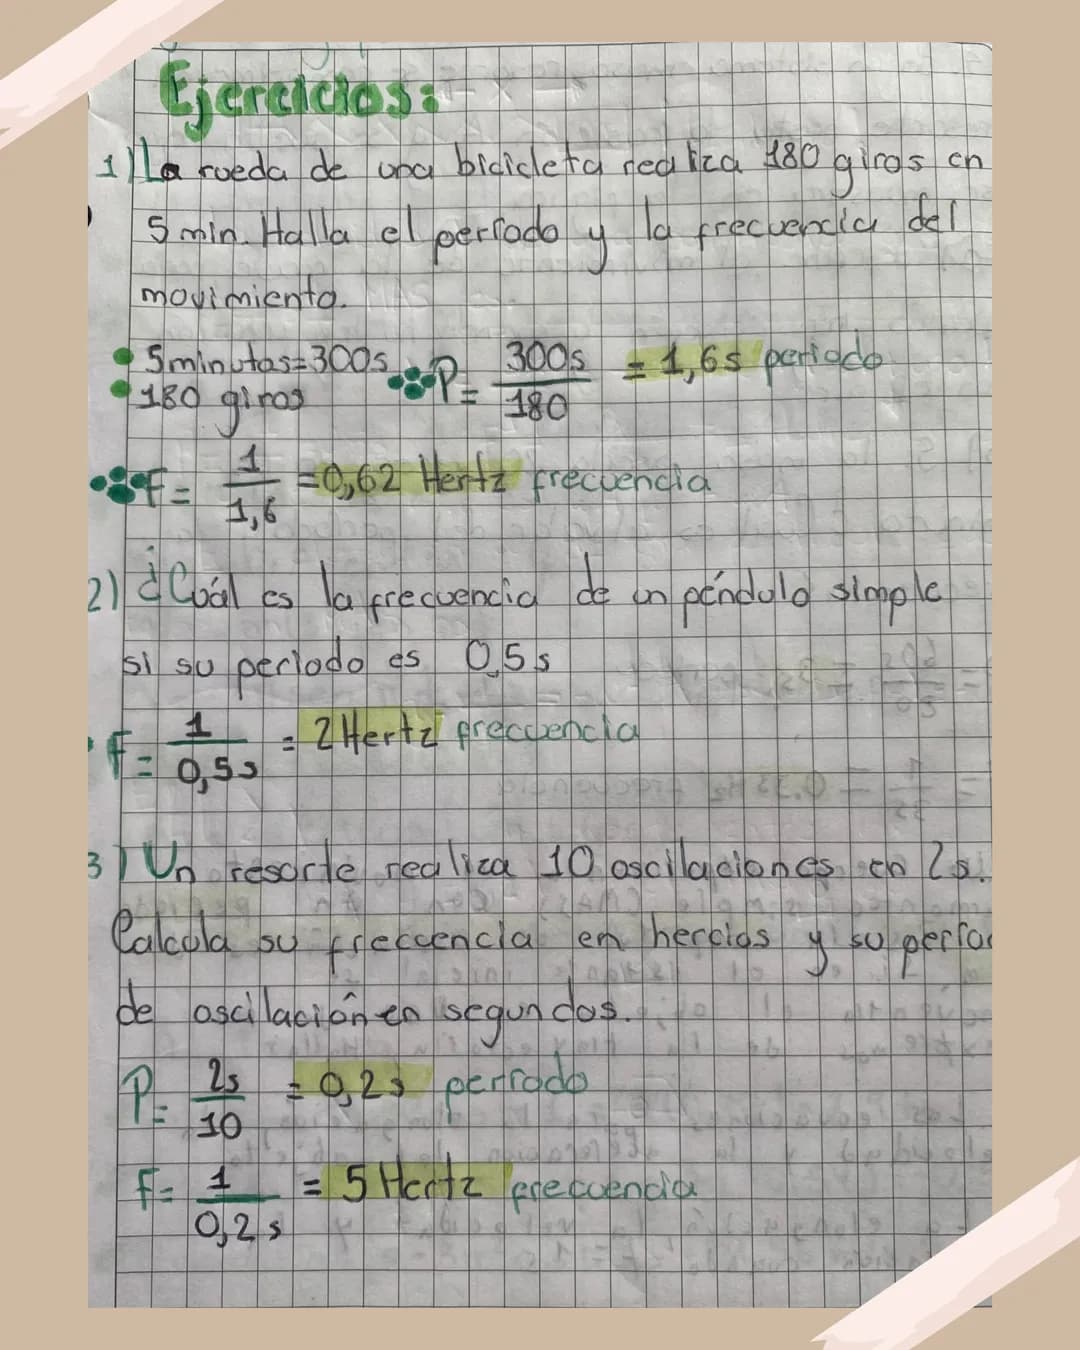 Ejercicios:
1) La rueda de una bicicleta realiza 180 giros en
5 min. Halla el período y la frecuencia del
movimiento.
5minutos=300s P= 300s/180 = 1,6s periodo
180 giros
F= 1/1,6 =0,62 Hertz frecuencia
2) ¿Cuál es la frecuencia de un péndulo simple
si su periodo es 0,5s
F= 1/0,5s = 2 Hertz frecuencia
3) Un resorte realiza 10 oscilaciones en 2s.
Calcula su frecuencia en hercios y su períod
de oscilación en segundos.
P= 2s/10 = 0,2s período
F= 1/0,2s = 5 Hertz frecuencia